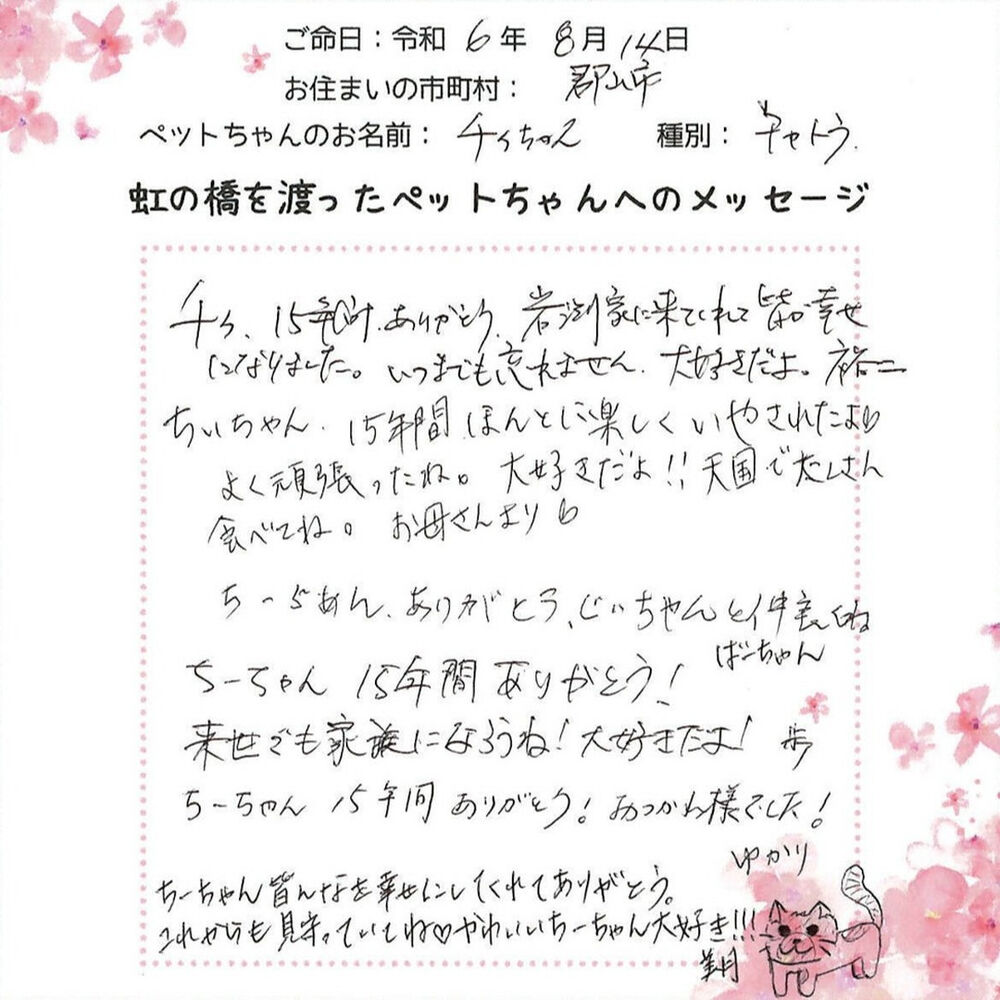 ご命日：令和 6年 8月 14日
お住まいの市町村： 郡山市
ペットちゃんのお名前： チィちゃん 種別： チャトラ
虹の橋を渡ったペットちゃんへのメッセージ
チィ、15年間、ありがとう、岩渕家に来てくれて皆が幸せ
になりました。いつまでも忘れません、大好きだよ。裕二
ちぃちゃん、15年間ほんとに楽しくいやされたよ
よく頑張ったね。大好きだよ!!天国でたくさん
食べてね。お母さんより
ちーちゃん、ありがとう、じいちゃんと仲良くね
ばーちゃん
ちーちゃん 15年間ありがとう!
来世でも家族になろうね!大好きだよ! 歩
ちーちゃん 15年間ありがとう!おつかれ様でした!
ゆかり
ちーちゃん皆んなを幸せにしてくれてありがとう。
これからも見守っていてね♡かわいいちーちゃん大好き!!!
美月